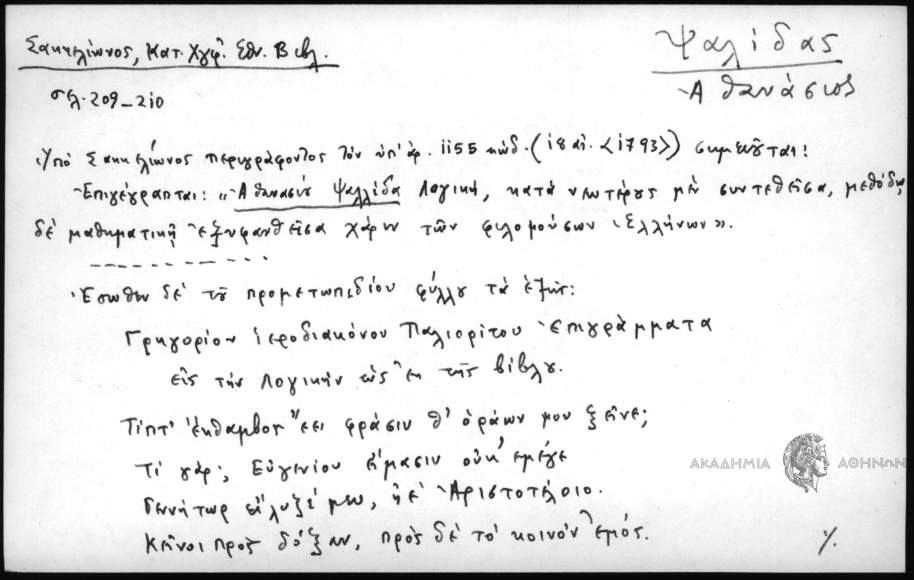 Σακκελίωνος, Κατ. Χγφ. Εθν. Βιβλ.
Ψαλίδας
Αθανάσιος
σελ. 209-210
Ὑπό Σακκελίωνος περιγράφοντος τόν ὑπ' ἀρ. 1155 κώδ. (18 αἰ. <1793>) σημειοῦται:
Ἐπιγέγραπται: "Ἀθανασίου Ψαλλίδα Λογική, κατά νεωτέρους μέν συντεθεῖσα, μεθόδῳ
δέ μαθηματικῇ ἐξυφανθεῖσα χάριν τῶν φιλομούσων Ἑλλήνων".
Ἔσωθεν δέ τοῦ προμετωπιδίου φύλλου τά ἑξῆς:
Γρηγορίου ἱεροδιακόνου Παλιορίτου ἐπιγράμματα
εἰς τήν Λογικήν ὡς ἐκ τῆς βίβλου.
Τίπτ' ἔκθαμβος ἔει φράσιν θ' ὁράων μου ξεῖνε;
Τί γάρ; Εὐγενίου εἴμασιν οὐκ ἐμέγε
Γεννήτωρ, ἠέ Ἀριστοτέλοιο.
Κεῖνοι πρός δόξαν, πρός δέ τό κοινόν ἐμός.
ΑΚΑΔΗΜΙΑ ΑΘΗΝΩΝ
%.